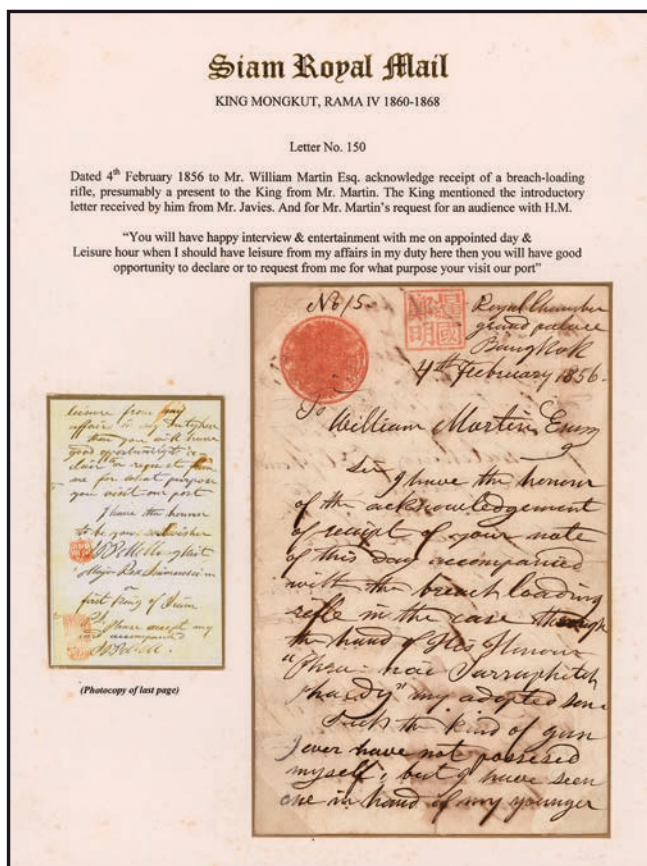 Siam Royal Mail
KING MONGKUT, RAMA IV 1860-1868
Letter No. 150
Dated 4th February 1856 to Mr. William Martin Esq. acknowledge receipt of a breach-loading
rifle, presumably a present to the King from Mr. Martin. The King mentioned the introductory
letter received by him from Mr. Javies. And for Mr. Martin's request for an audience with H.M.
"You will have happy interview & entertainment with me on appointed day &
Leisure hour when I should have leisure from my affairs in my duty here then you will have good
opportunity to declare or to request from me for what purpose your visit our port"
leisure from my
affair in my duty here
then you will have
good opportunity to
or request from
me for what purpose
you visit our port
I have the honour
to be your
Major Rex Siamensium
or
first King of Siam
P.S. Please accept my
card accompanied
(Photocopy of last page)
Royal Chamber
grand palace
Bangkok
4th February 1856.
To William Martin
Sir
I have the honour
of the acknowledgement
of receipt of your note
of this day accompanied
with the breach loading
rifle in the case through
the hand of His Honour
my adopted son.
Such the kind of gun
I ever have not possesed
myself, but I have seen
one in hand of my younger